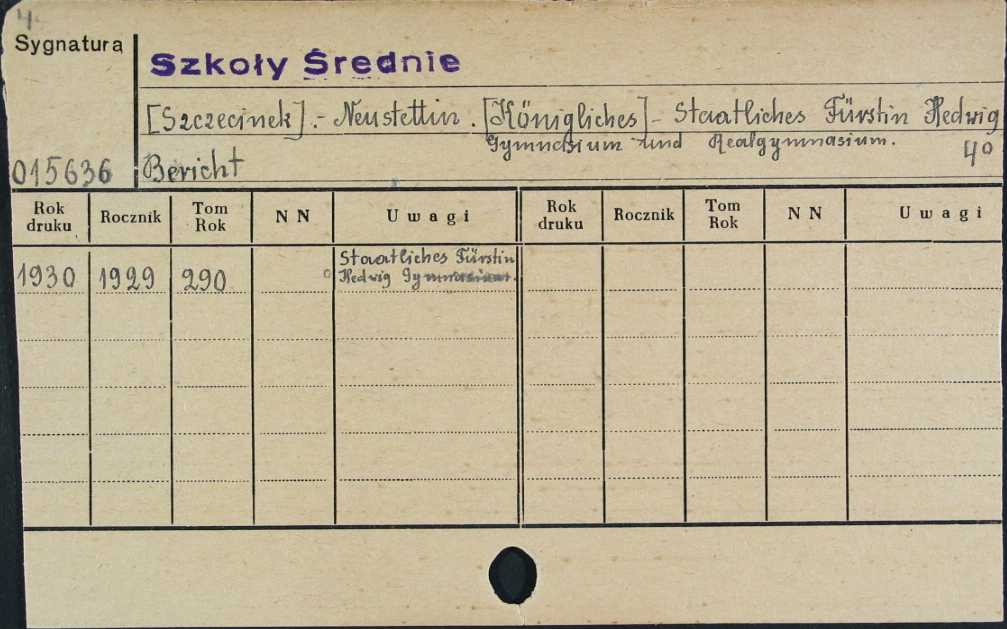 4
Sygnatura
Szkoły Średnie
[Szczecinek].- Neustettin. [Königliches]- Staatliches Fürstin Hedwig
Gymnasium und Realgymnasium.
4º
015636
Bericht
Rok druku Rocznik Tom Rok NN Uwagi Rok druku Rocznik Tom Rok NN Uwagi
1930 1929 290 Staatliches Fürstin
Hedwig Gymnasium.